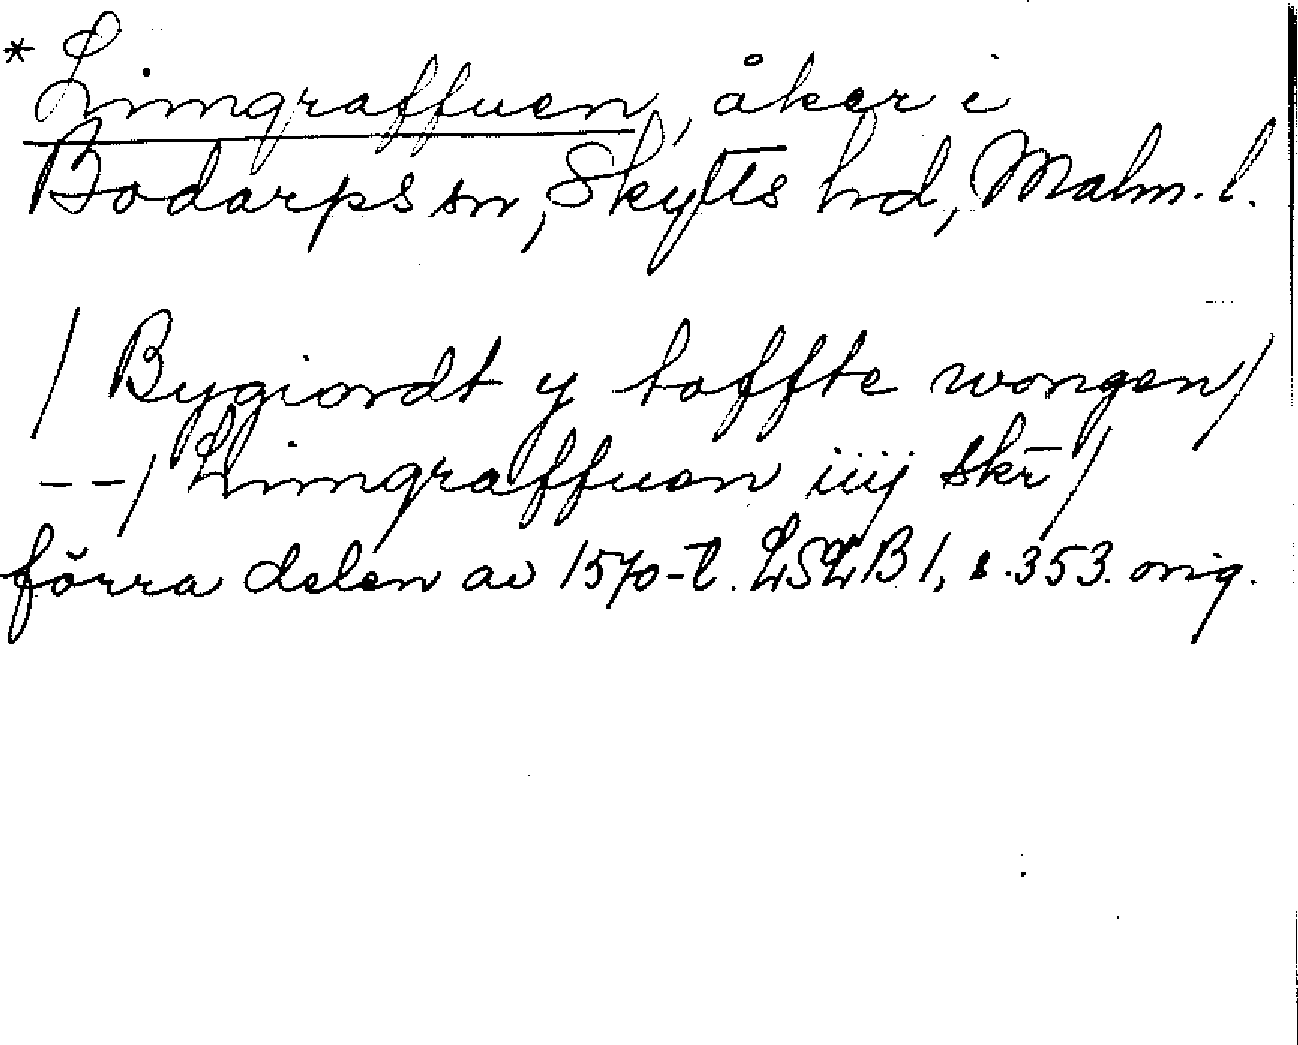 * Limgraffuen, åker i
Bodarps sn, Skytts hd, Malm. l.
/ Bygiordt y toffte wongen /
-- / Limgraffuen iiij skr /
förra delen av 1570-t. LSLB 1, s. 353. orig.